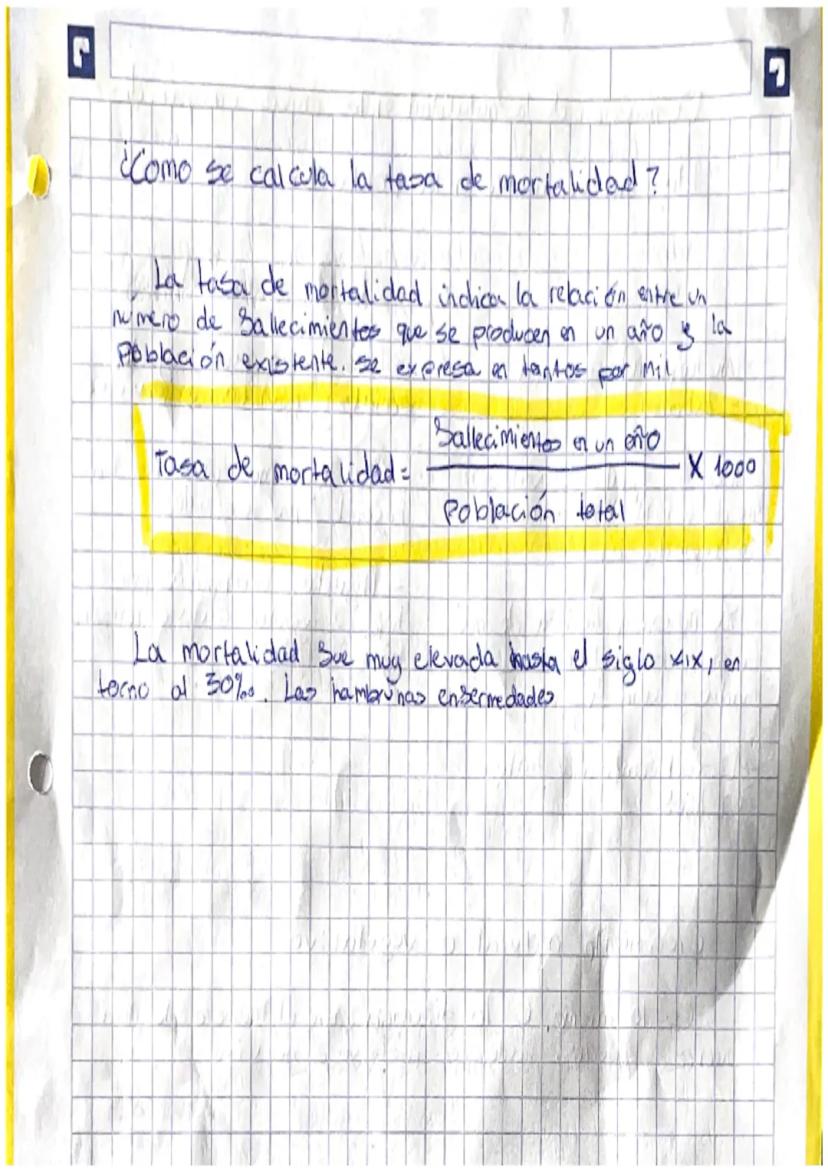 ¿Como se calcula la tasa de mortalidad?
La tasa de mortalidad indica la relación entre un
número de fallecimientos que se producen en un año y la
población existente. se expresa en tantos por mil
Tasa de mortalidad = fallecimientos en un año / Población total X 1000
La mortalidad fue muy elevada hasta el siglo XIX, en
torno al 30‰. Las hambrunas enfermedades